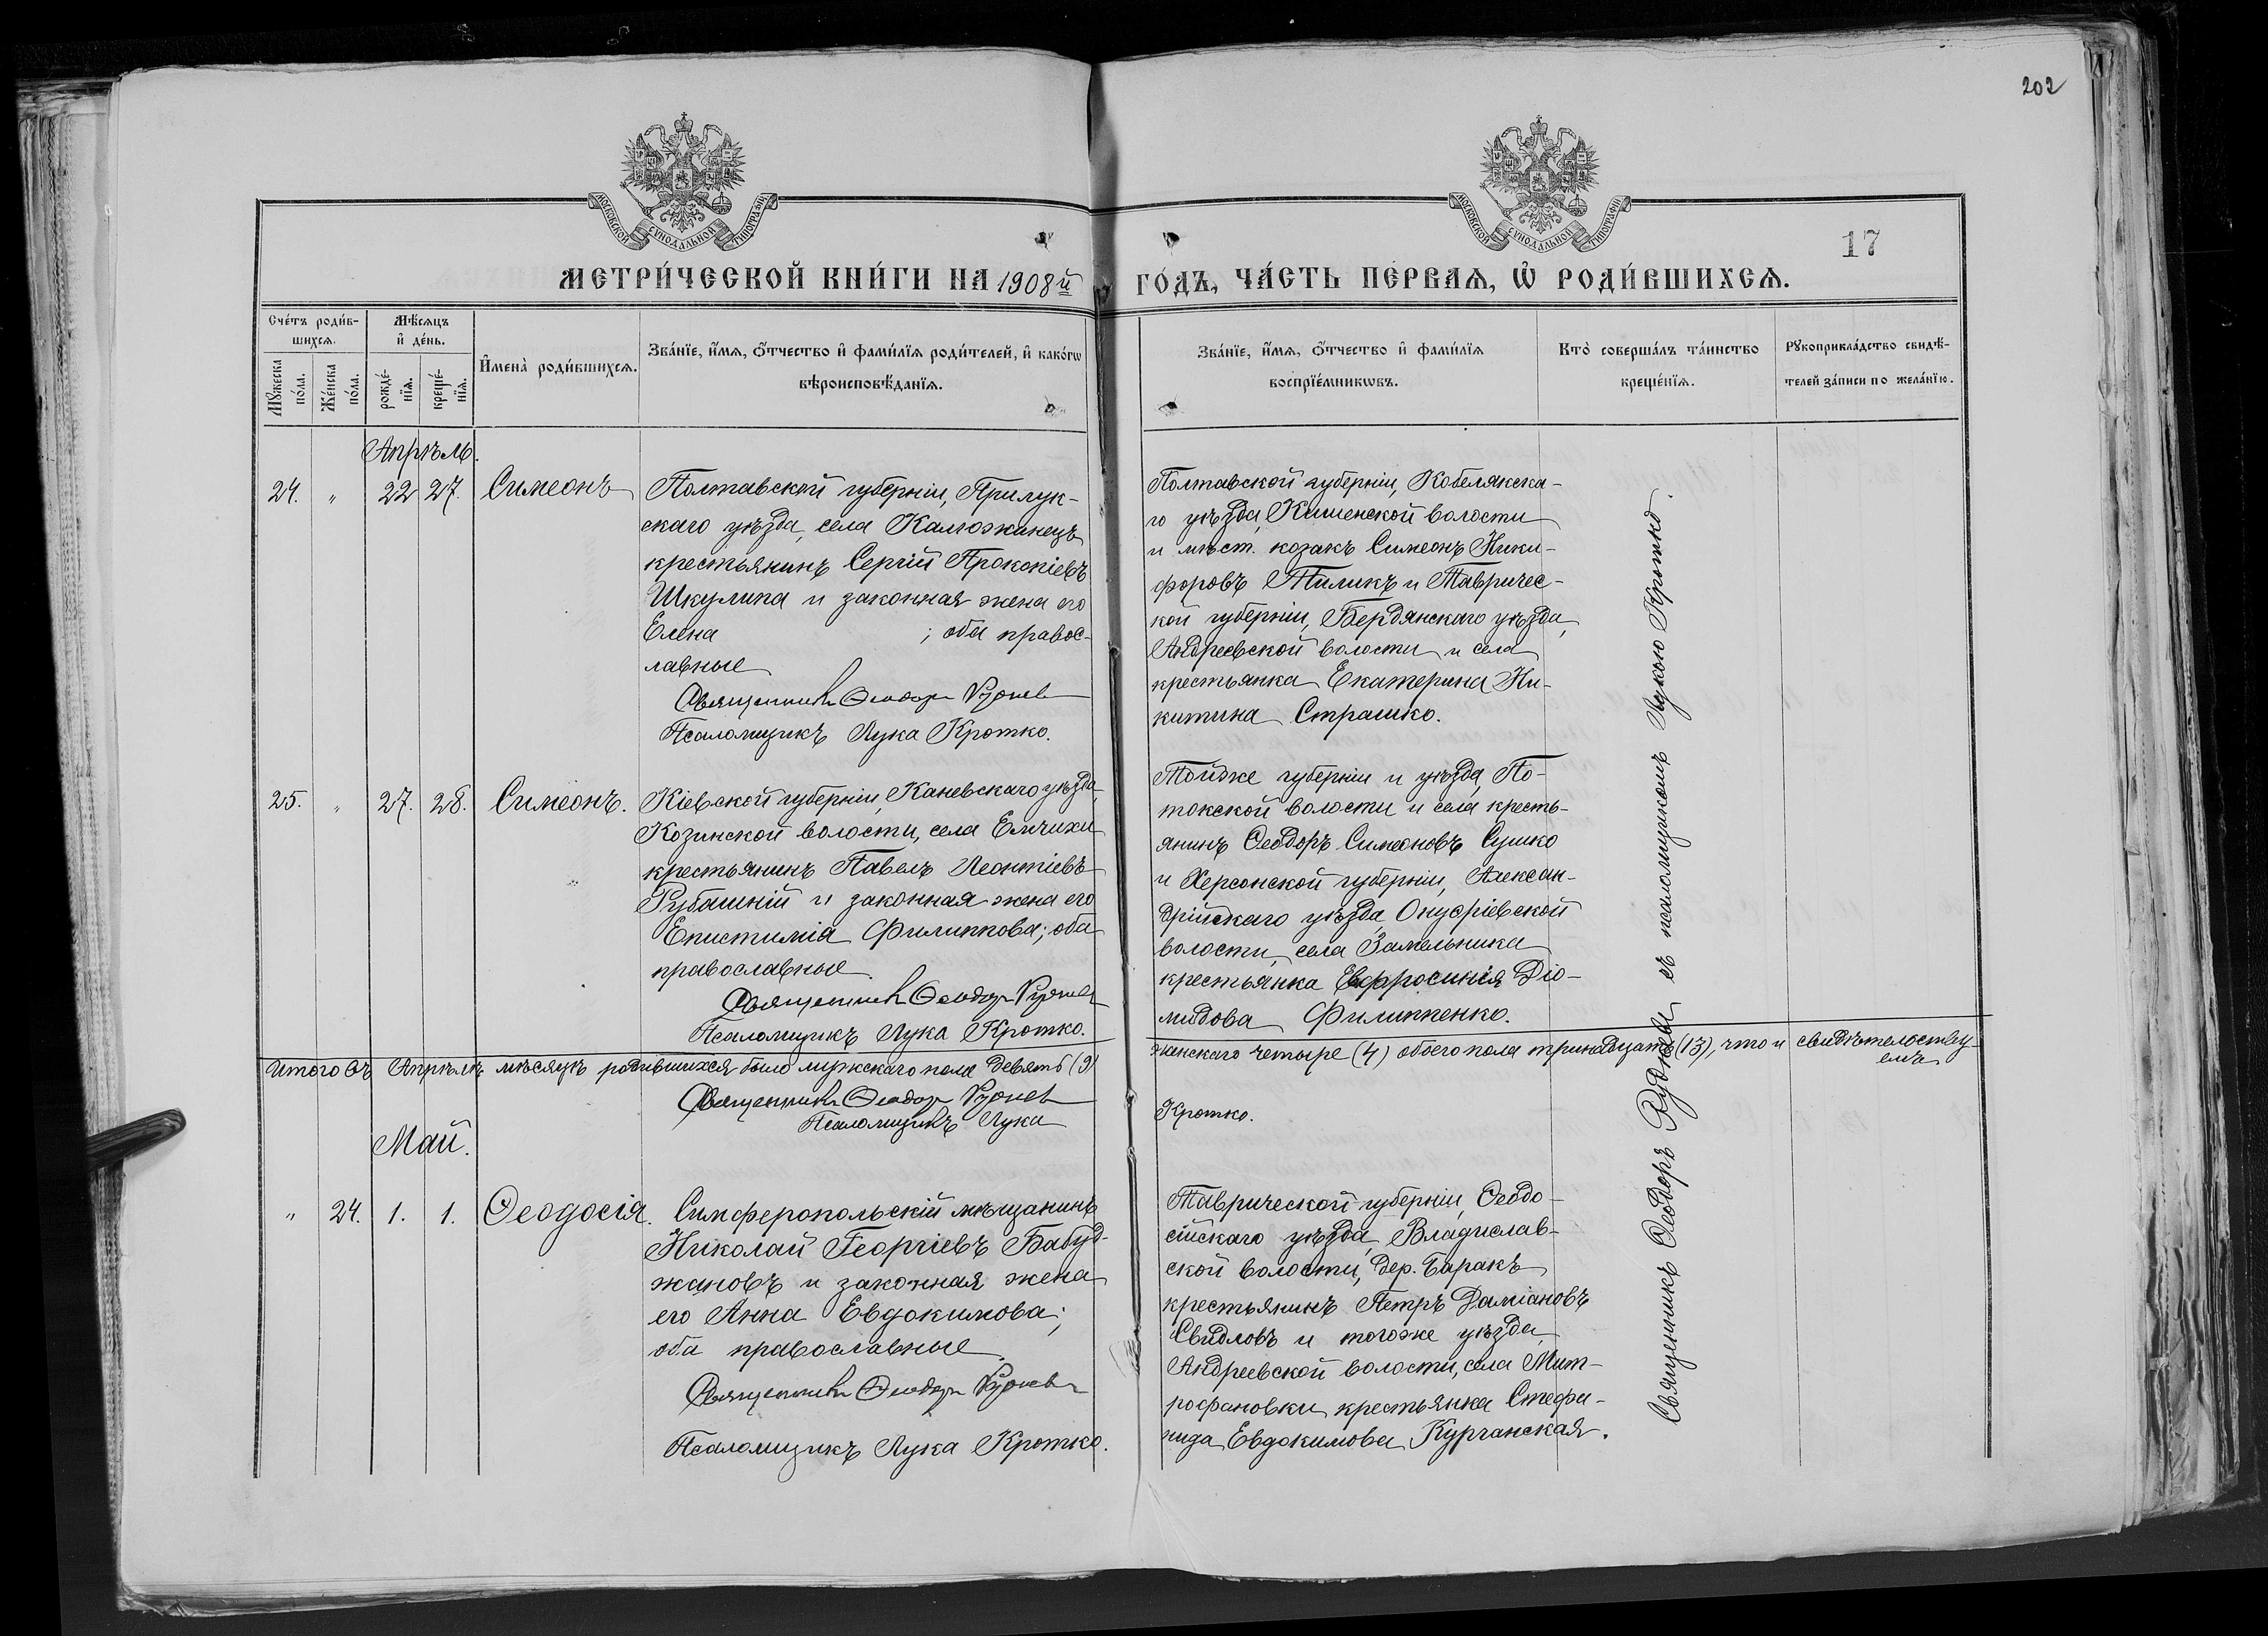 202
МОСКОВСКОЙ СУНОДАЛЬНОЙ ТИПОГРАФІИ
МОСКОВСКОЙ СУНОДАЛЬНОЙ ТИПОГРАФІИ
17
МЕТРИ́ЧЕСКОЙ КНИ́ГИ НА 1908й ГО́ДЪ, ЧА́СТЬ ПЕ́РВАѦ, Ѡ҆ РОДИ́ВШИХСѦ.
Сче́тъ роди́в-
шихсѧ.
Мꙋжеска по́ла.
Же́нска по́ла.
Мѣ́сѧцъ
и҆ де́нь.
рожде́-
нїѧ.
креще́-
нїѧ.
И҆мена̀ роди́вшихсѧ.
Зва́нїе, и҆́мѧ, ѻ҆́тчество и҆ фами́лїѧ роди́телей, и҆ како́гѡ
вѣроисповѣ́данїѧ.
Зва́нїе, и҆́мѧ, ѻ҆́тчество и҆ фами́лїѧ
воспрїе́мникѡвъ.
Кто̀ соверша́лъ та́инство
креще́нїѧ.
Рꙋкоприкла́дство свидѣ́-
телей за́писи по жела́нїю.
Апрѣль.
24. " 22 27. Симеонъ
Полтавской губерніи, Прилук-
скаго уѣзда, села Калюжинецъ
крестьянинъ Сергій Прокопіевъ
Шкулипа и законная жена его
Елена ; оба правос-
лавные
Священникъ Ѳеодоръ Руднев
Псаломщикъ Лука Кротко.
Полтавской губерніи, Кобелякска-
го уѣзда, Кишенской волости
и мѣст. козакъ Симеонъ Ники-
форовъ Пиликъ и Тавричес-
кой губерніи, Бердянскаго уѣзда,
Андреевской волости и села
крестьянка Екатерина Ни-
китина Страшко.
25. " 27. 28. Симеонъ.
Кіевской губерніи, Каневскаго уѣзда,
Козинской волости, села Емчихи
крестьянинъ Павелъ Леонтіевъ
Рубашній и законная жена его
Епистимія Филиппова; оба
православные.
Священникъ Ѳеодоръ Руднев
Псаломщикъ Лука Кротко.
Тойже губерніи и уѣзда, По-
токской волости и села кресть-
янинъ Ѳеодоръ Симеоновъ Сушко
и Херсонской губерніи, Алексан-
дрійскаго уѣзда, Онуфріевской
волости, села Замельника
крестьянка Евфросинія Діо-
мидова Филиппенко.
Итого въ Апрѣлѣ мѣсяцѣ родившихся было мужскаго пола девять (9)
женскаго четыре (4) обоего пола тринадцать (13), что и свидѣтельству-
емъ
Священникъ Ѳеодоръ Руднев
Псаломщикъ Лука Кротко.
Май.
" 24. 1. 1. Ѳеодосія.
Симферопольскій мѣщанинъ
Николай Георгіевъ Бабуд-
жановъ и законная жена
его Анна Евдокимова;
оба православные.
Священникъ Ѳеодоръ Руднев
Псаломщикъ Лука Кротко.
Таврической губерніи, Ѳеодо-
сійскаго уѣзда, Владислав-
ской волости, дер. Баракъ
крестьянинъ Петръ Даміановъ
Свидловъ и тогоже уѣзда,
Андреевской волости, села Мит-
рофановки крестьянка Стефа-
нида Евдокимова Курчанская.
Священникъ Ѳеодоръ Рудневъ съ псаломщикомъ Лукою Кротко.